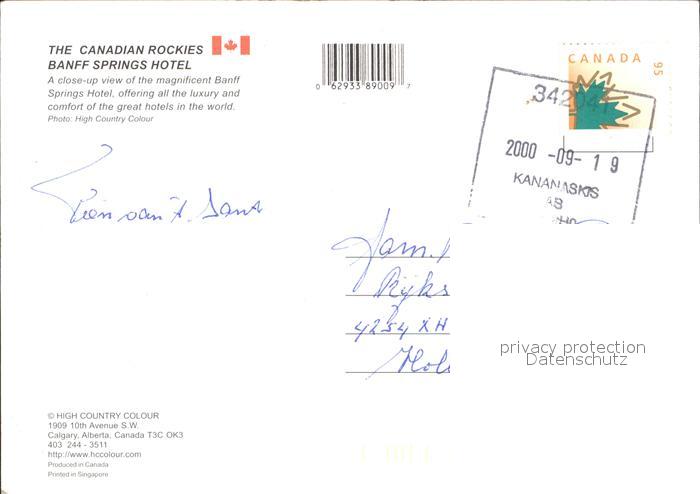 THE CANADIAN ROCKIES
BANFF SPRINGS HOTEL
A close-up view of the magnificent Banff
Springs Hotel, offering all the luxury and
comfort of the great hotels in the world.
Photo: High Country Colour
0 62933 89009 7
CANADA
95
342041
2000 -09- 19
KANANASKIS
AB
van
Fam.
Rijks
4254 XH
Hol
privacy protection
Datenschutz
© HIGH COUNTRY COLOUR
1909 10th Avenue S.W.
Calgary, Alberta, Canada T3C OK3
403 244 - 3511
http://www.hccolour.com
Produced in Canada
Printed in Singapore